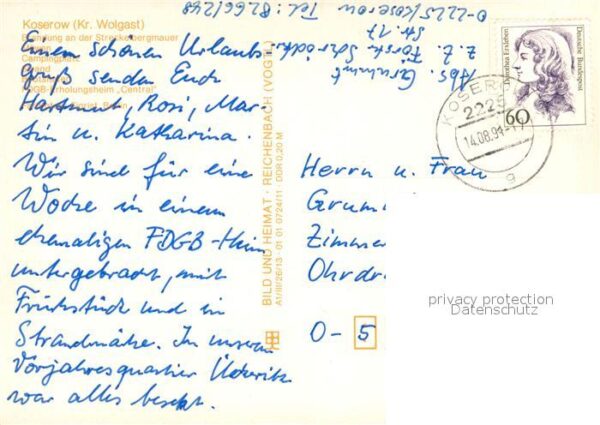 Koserow (Kr. Wolgast)
Brandung an der Streckelsbergmauer
Campingplatz
Strand
FDGB-Erholungsheim "Central"
Einen schönen Urlaubs-
gruß senden Euch
Hartmut, Rosi, Mar-
tin u. Katharina.
Wir sind für eine
Woche in einem
ehemaligen FDGB-Heim
untergebracht, mit
Frühstück und in
Strandnähe. In unserem
Vorjahresquartier Ückeritz
war alles besetzt.
BILD UND HEIMAT · REICHENBACH (VOGTL)
A1/III/26/13 01 01 0724/11 DDR 0,20 M
Abs.
z. Z.
Str. 17
O-2225 Koserow Tel.: 8266/268
Dorothea Erxleben
Deutsche Bundespost
60
KOSEROW
2225
14.08.91
a
Herrn u. Frau
Zimmer
Ohrdr
O-5
privacy protection
Datenschutz